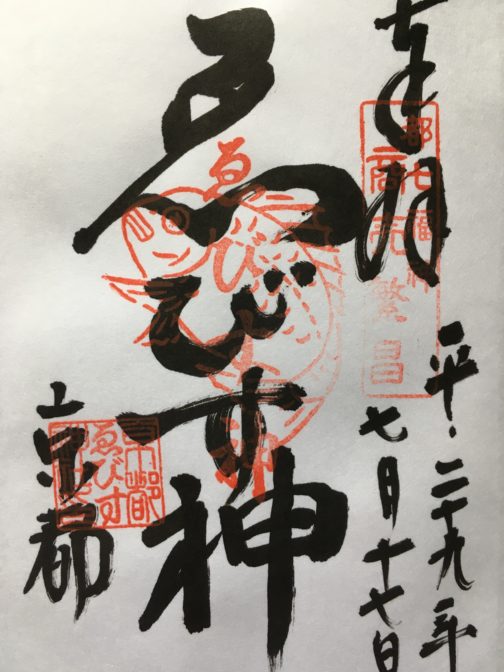 奉拝
都七福神
商売繁昌
平・二十九年
七月十七日
ゑびす神
ゑびす神
京都
京都
ゑびす
神社